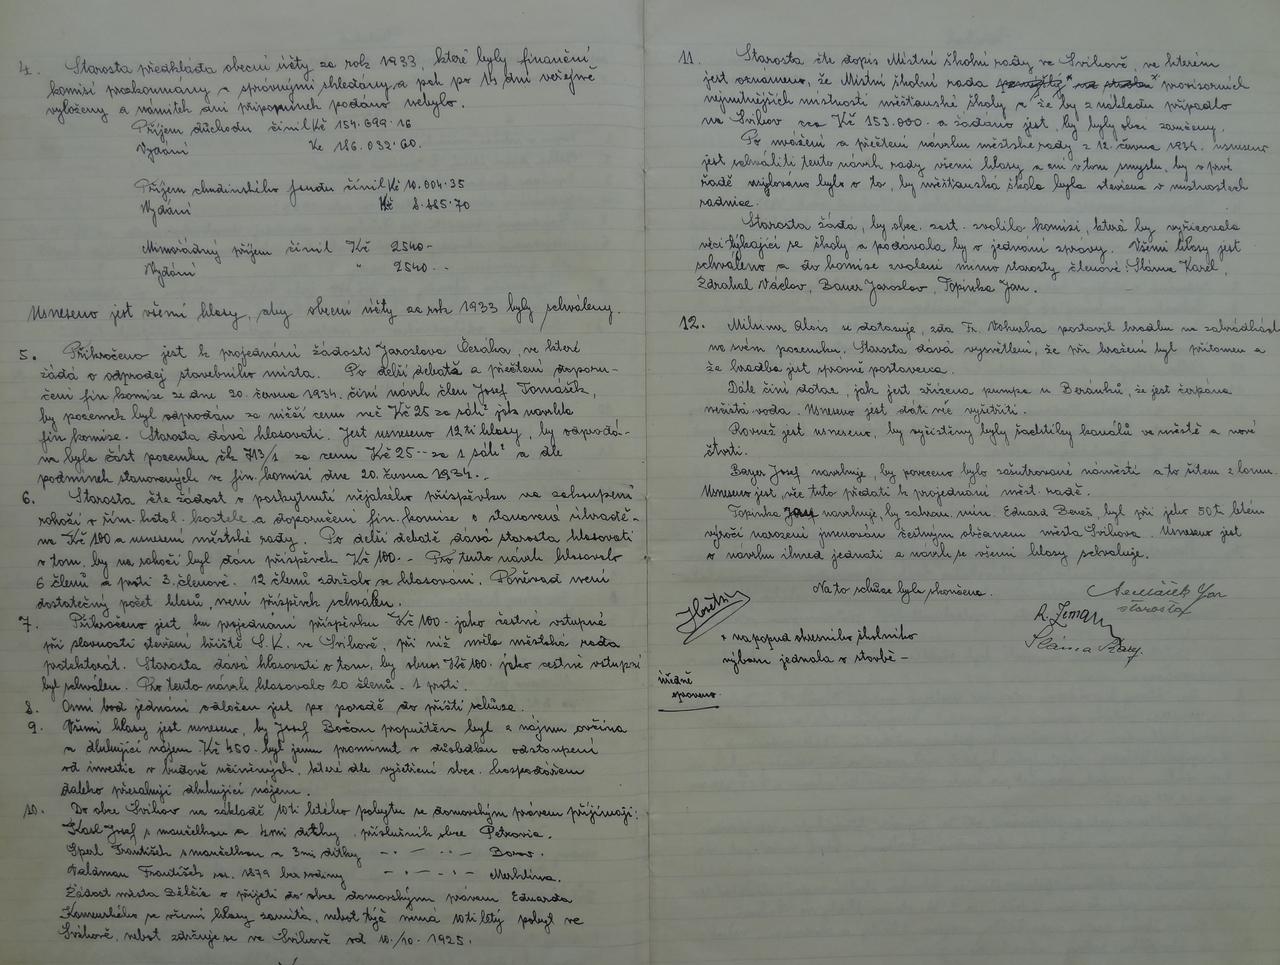 4. Starosta předkládá obecní účty za rok 1933, které byly finanční
komisí prozkoumány a správnými shledány a pak po 14 dní veřejně
vyloženy a námitek ani připomínek podáno nebylo.
Příjem důchodu činil Kč 154.099.16
Vydání Kč 186.032.60.
Příjem chudinského fondu činil Kč 10.004.35
Vydání Kč 8.885.70
Mimořádný příjem činil Kč 2540.-
Vydání " 2540.-
Usneseno jest všemi hlasy, aby obecní účty za rok 1933 byly schváleny.
5. Přikročeno jest k projednání žádosti Jaroslava Čeráka, ve které
žádá o odprodej stavebního místa. Po delší debatě a přečtení doporu-
čení fin. komise ze dne 20. června 1934. činí návrh člen Josef Tomášek,
by pozemek byl odprodán za nižší cenu než Kč 25 za sáh² jak navrhla
fin. komise. Starosta dává hlasovati. Jest usneseno 12ti hlasy, by odprodá-
na byla část pozemku čk 713/1 za cenu Kč 25.- za 1 sáh² a dle
podmínek stanovených ve fin. komisi dne 20. června 1934.
6. Starosta čte žádost o poskytnutí nějakého příspěvku na zakoupení
rohoží v řím. katol. kostele a doporučení fin. komise o stanovené úhradě-
na Kč 100 a usnesení městské rady. Po delší debatě dává starosta hlasovati
o tom, by na rohoži byl dán příspěvek Kč 100.- Pro tento návrh hlasovalo
6 členů a proti 3. členové. 12 členů zdrželo se hlasování. Poněvad není
dostatečný počet hlasů, není příspěvek schválen.
7. Přikročeno jest ku projednání příspěvku Kč 100.- jako čestné vstupné
při slavnosti otevření hřiště S.K. ve Švihově, při níž měla městská rada
protektorát. Starosta dává hlasovati o tom, by obnos Kč 100. jako čestné vstupné
byl schválen. Pro tento návrh hlasovalo 20 členů. 1 proti.
8. Osmí bod jednání odložen jest po poradě do příští schůze.
9. Všemi hlasy jest usneseno, by Josef Bočan propuštěn byl z nájmu ovčína
a dlužující nájem Kč 450.- byl jemu prominut v důsledku odstoupení
od investic v budově učiněných, které dle vyšetření obec. hospodářem
daleko přesahují dlužující nájem.
10. Do obce Švihov na základě 10ti letého pobytu se domovským právem přijímají:
Karel Josef s manželkou a 4mi dítky, příslušník obce Petrovic.
Šperl František s manželkou a 3mi dítky -.- -.- Borov.
Valdman František nar. 1879 bez rodiny -.- -.- Merklína.
Žádost města Bělčic o přijetí do obce domovským právem Eduarda
Komenského se všemi hlasy zamítá, neboť týž nemá 10ti letý pobyt ve
Švihově, neboť zdržuje se ve Švihově od 10./10. 1925.
11. Starosta čte dopis Místní školní rady ve Švihově, ve kterém
jest oznámeno, že Místní školní rada × provisorních
nejnutnějších místností měšťanské školy a že by z nákladu připadlo
na Švihov as Kč 153.000.- a žádáno jest, by byly obcí zaručeny.
Po uvážení a přečtení návrhu městské rady z 12. června 1934. usneseno
jest schváliti tento návrh rady všemi hlasy a sní v tom smyslu, by v prvé
řadě usilováno bylo o to, by měšťanská škola byla stavena v místnostech
radnice.
Starosta žádá, by obec. zast. zvolilo komisi, která by vyřizovala
věci týkající se školy a podávala by o jednání zprávy. Všemi hlasy jest
schváleno a do komise zvoleni mimo starosty členové: Sláma Karel,
Zdrahal Václav, Bauer Jaroslav, Topinka Jan.
12. Alois se dotazuje, zda Fr. Vohurka postavil hradbu na zahrádkách
na svém pozemku. Starosta dává vysvětlení, že při hražení byl přítomen a
že hradba jest správně postavena.
Dále činí dotaz, jak jest zřízena pumpa u Beránků, že jest čerpána
nečistá voda. Usneseno jest dáti vše vyšetřiti.
Rovněž jest usneseno, by vyčištěny byly šachtičky kanálů ve městě a nové
čtvrti.
Bayer Josef navrhuje, by povezeno bylo zašutrované náměstí a to štěrkem z lomu.
Usneseno jest, vše toto předati k projednání měst. radě.
Topinka Jan navrhuje, by zahran. min. Eduard Beneš, byl při jeho 50ti letém
výročí narození jmenován čestným občanem města Švihova. Usneseno jest
o návrhu ihned jednati a návrh se všemi hlasy schvaluje.
Na to schůze byla skončena.
Tomášek Jan
starosta
R. Zeman
Sláma Karel
× na popud okresního školního
výboru jednala o stavbě -
úředně
opraveno.